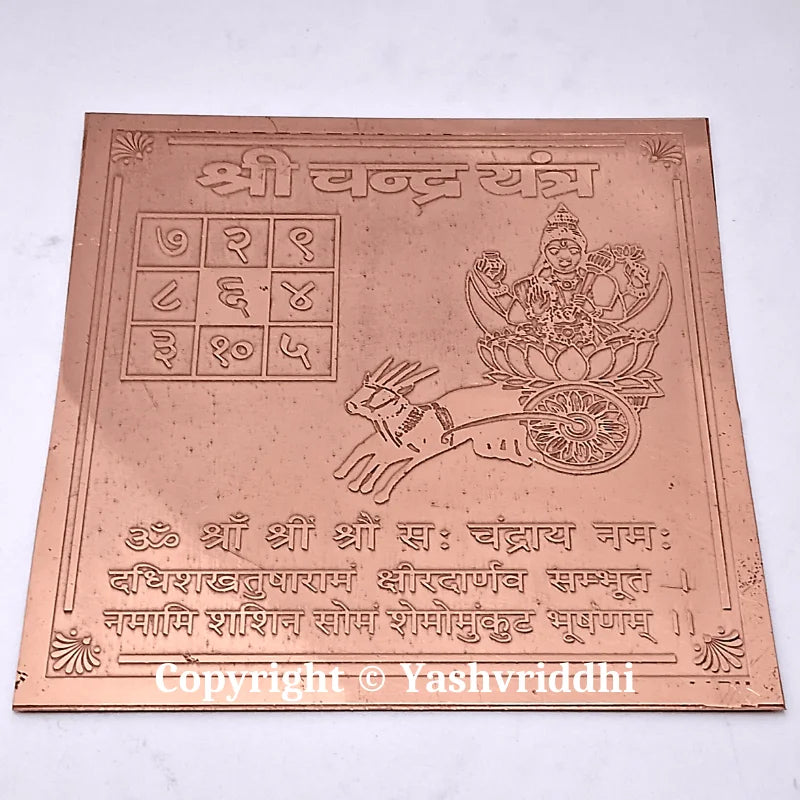 श्री चन्द्र यंत्र
७ २ ९
८ ६ ४
३ १० ५
ॐ श्राँ श्रीं श्रौं सः चंद्राय नमः
दधिशखतुषारामं क्षीरदार्णव सम्भूत ।
नमामि शशिन सोमं शेमोमुंकुट भूषणम् ।।
Copyright © Yashvriddhi